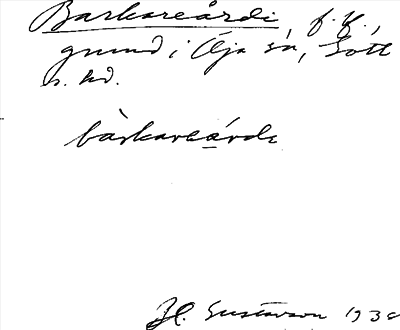 Barkareårdi, f.
grund i Öja sn, Gott
s. hd.
bàrkareárdi
H. Gustavson 193